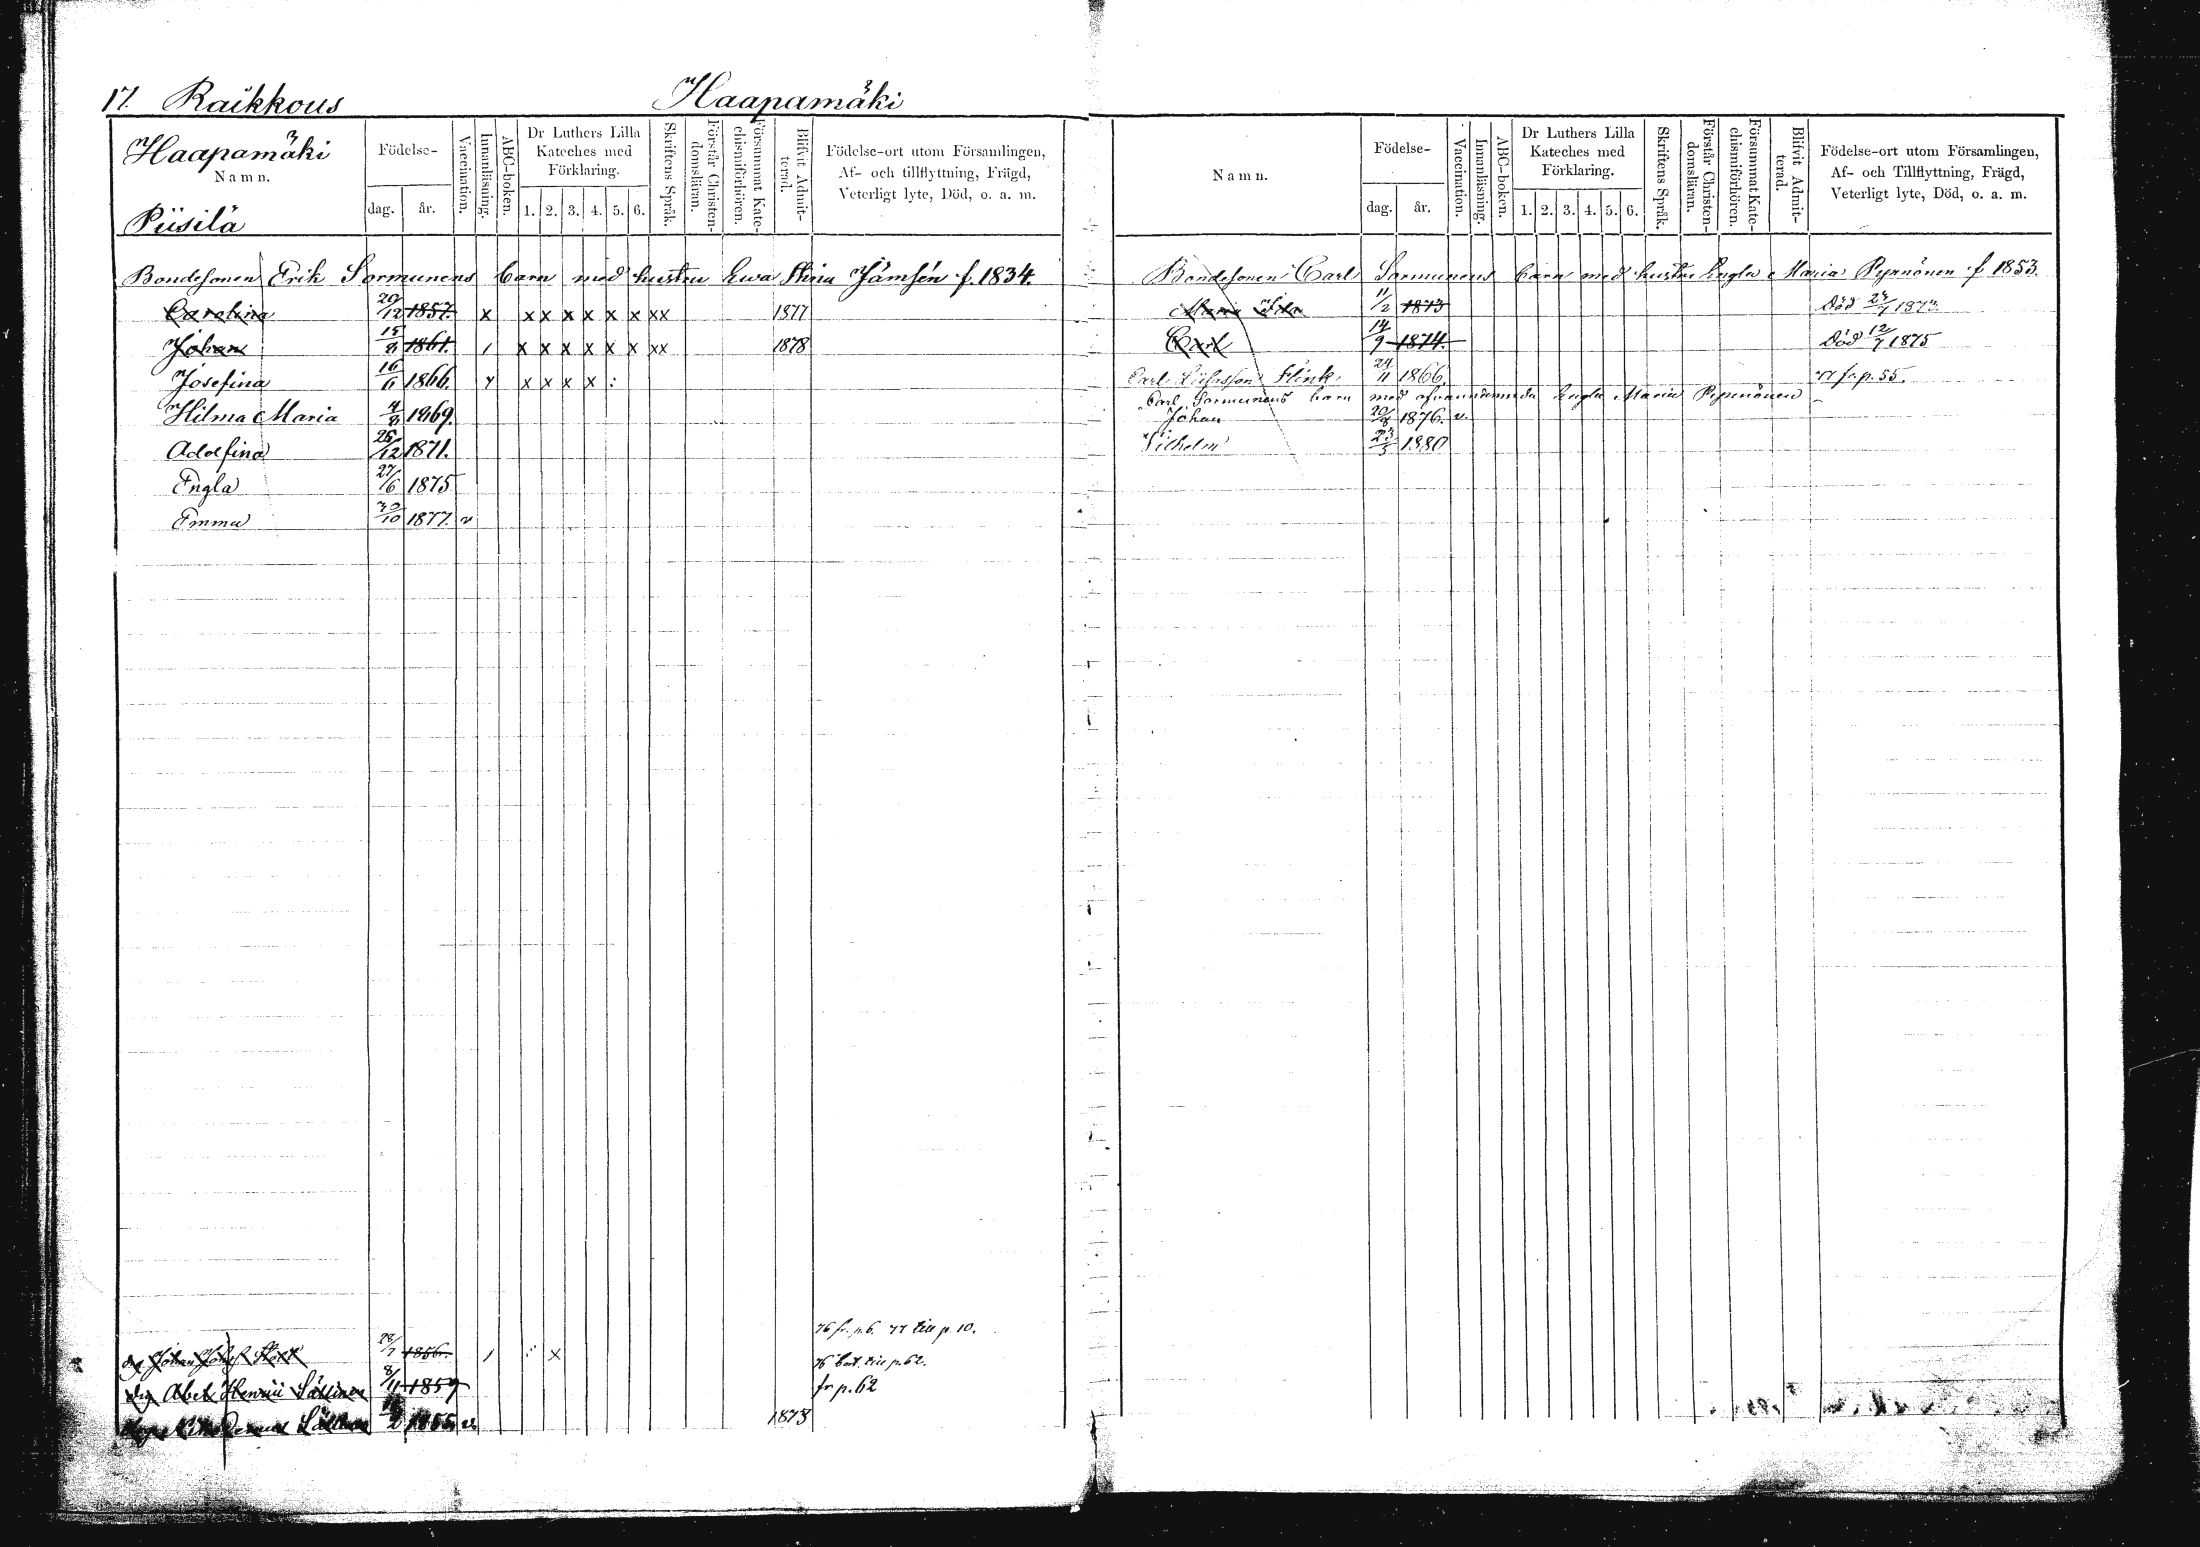 17. Raikkous Haapamäki
Haapamäki
Namn.
Piisilä
Födelse-
dag. år.
Vaccination.
Innanläsning.
ABC-boken.
Dr Luthers Lilla
Kateches med
Förklaring.
1. 2. 3. 4. 5. 6.
Skriftens Språk.
Förstår Christen-
domsläran.
Försummat Kate-
chismiförhören.
Blifvit Admit-
terad.
Födelse-ort utom Församlingen,
Af- och tillflyttning, Frägd,
Veterligt lyte, Död, o. a. m.
Bondesonen Erik Sormunens barn med hustru Ewa Stina Jämsén f. 1834.
Carolina 20/12 1857. x x x x x x x xx 1877
Johan 15/8 1861. / x x x x x x xx 1878
Josefina 16/6 1866. y x x x x :
Hilma Maria 4/8 1869.
Adolfina 26/12 1871.
Engla 27/6 1875
Emma 30/10 1877. v
76 fr. p. 6. 77 till p. 10.
Johan 28/7 1856. / x
76 bort. till p. 62.
drg Abel Henrik 8/11 1859
fr p. 62
1855 v. 1873
Namn.
Födelse-
dag. år.
Vaccination.
Innanläsning.
ABC-boken.
Dr Luthers Lilla
Kateches med
Förklaring.
1. 2. 3. 4. 5. 6.
Skriftens Språk.
Förstår Christen-
domsläran.
Försummat Kate-
chismiförhören.
Blifvit Admit-
terad.
Födelse-ort utom Församlingen,
Af- och Tillflyttning, Frägd,
Veterligt lyte, Död, o. a. m.
Bondesonen Carl Sormunens barn med hustru Engla Maria Pynnönen f 1853.
Maria Ida 11/2 1873 Död 23/7 1873.
Carl 14/9 1874. Död 12/7 1875
Carl Flink 24/11 1866. 77 fr. p. 55.
Carl Sormunens barn med ofvannämnda Engla Maria Pynnönen
Johan 20/8 1876. v.
Vilhelm 23/3 1880